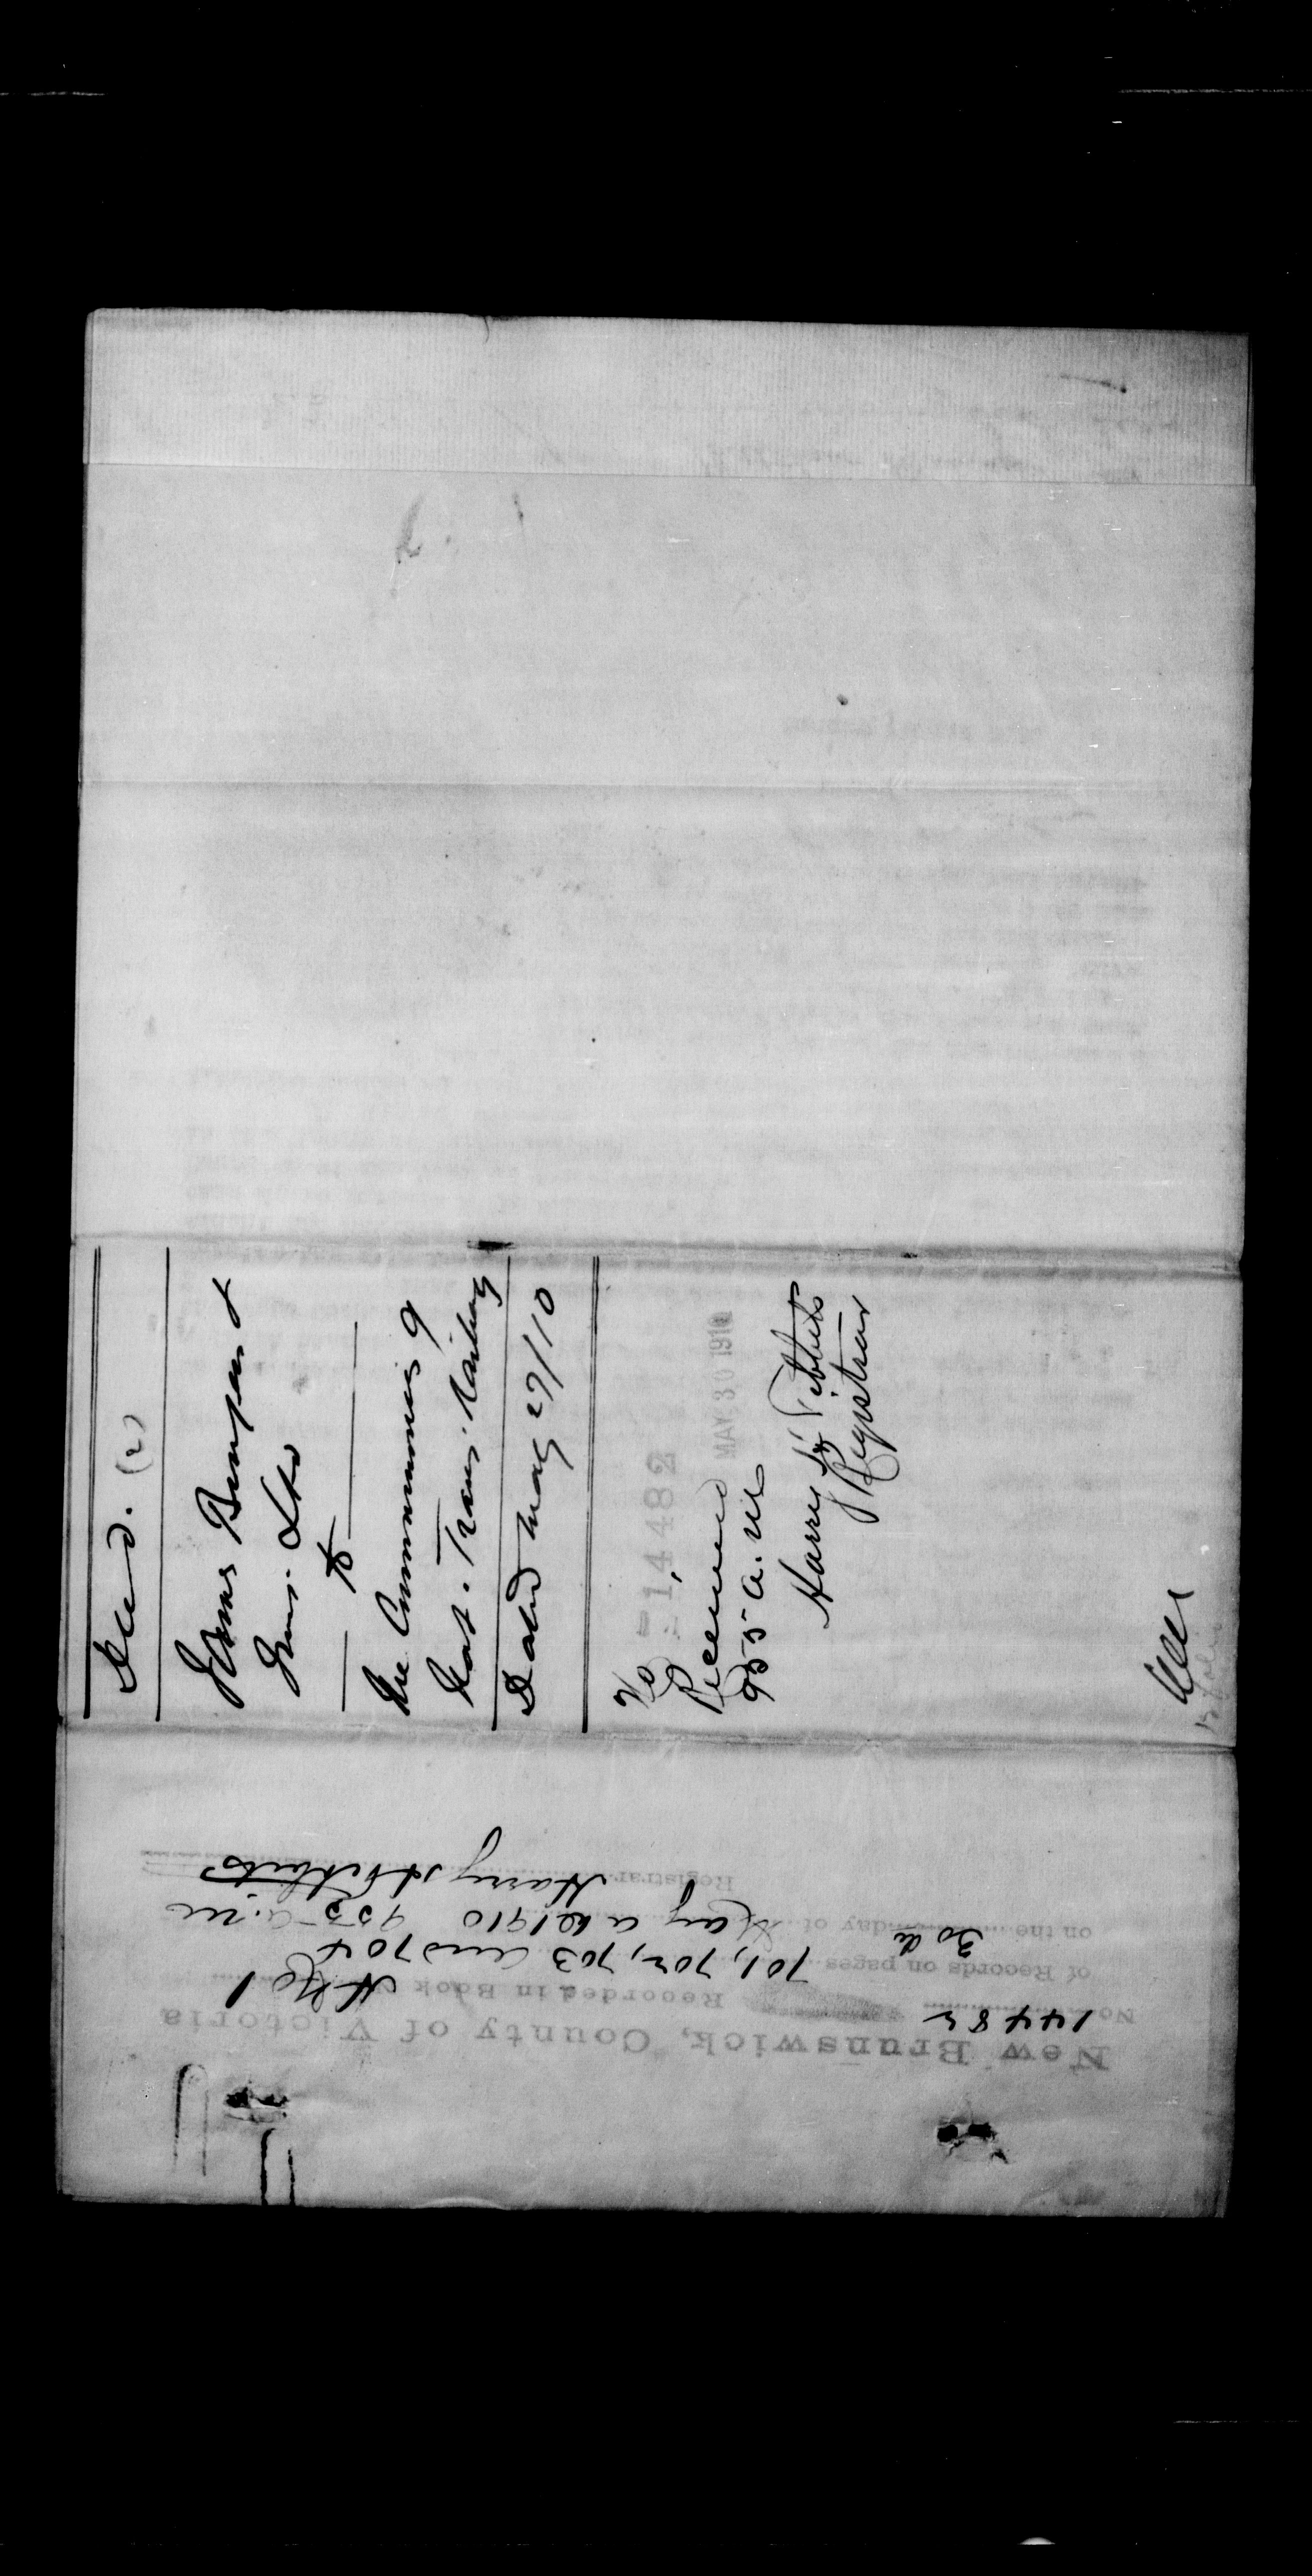 Deed. (2)
James Burgess &
Sons. Ltd
to
The Commissioners of
Nat. Trans. Railway
Dated May 27/10
No 14482
Received MAY 30 1910
955 a.m
Harry Tibbits
Registrar
New Brunswick, County of Victoria
No 14482 Recorded in Book No 1
of Records on pages 701, 702, 703 and 704
on the 30th day of May a d 1910 955 a.m
Registrar Harry Tibbits